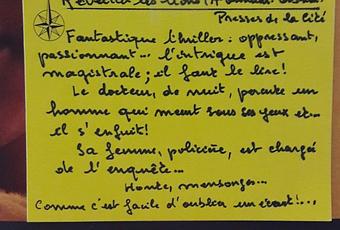 Presses de la Cité
Fantastique thriller : oppressant,
passionnant... l'intrigue est
magistrale ; il faut le lire !
Le docteur, de nuit, percute un
homme qui meurt sous ses yeux et...
il s'enfuit !
Sa femme, policière, est chargée
de l'enquête...
Honte, mensonges...
Comme c'est facile d'oublier un écart !...